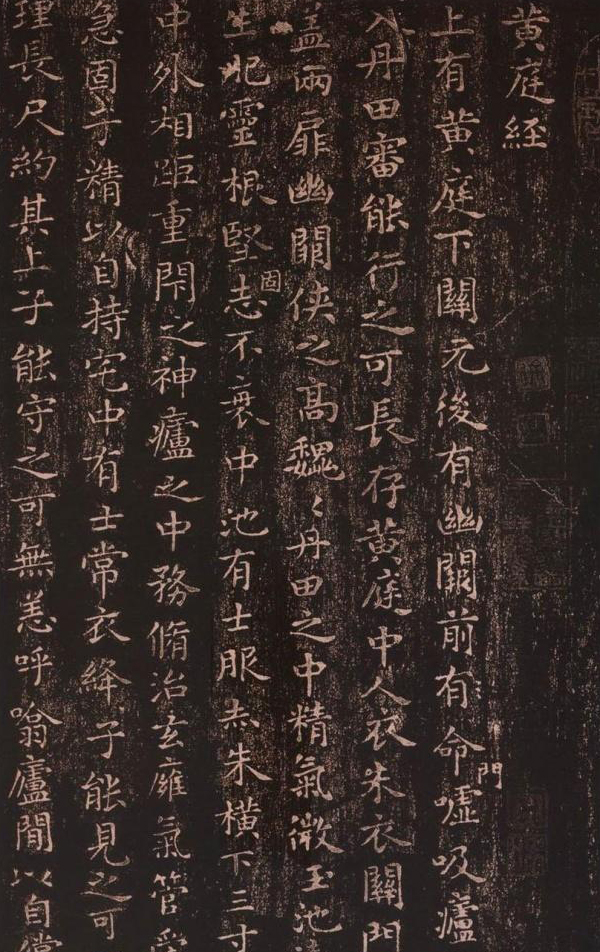 黄庭經
上有黄庭下關元後有幽闕前有命門噓吸廬
入丹田審能行之可長存黄庭中人衣朱衣關門
盖兩扉幽闕俠之高魏〻丹田之中精氣微玉池
生肥靈根堅固志不衰中池有士服赤朱橫下三寸
中外相距重閇之神廬之中務脩治玄廱氣管受
急固子精以自持宅中有士常衣絳子能見之可
理長尺約其上子能守之可無恙呼噏廬閒以自